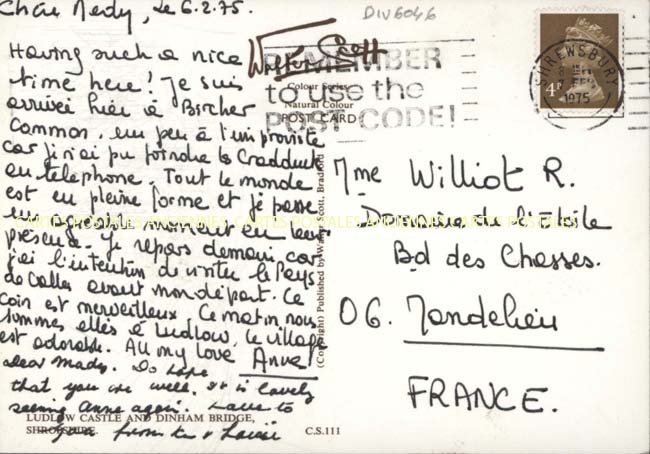 Chère Medy, le 6.2.75.
DIV6046
Having such a nice
time here! Je suis
arrivée hier à Bircher
Common, un peu à l'improviste
car je n'ai pu joindre les Cradduck
au téléphone. Tout le monde
est en pleine forme et je passe
un agréable moment en leur
présence. Je repars demain, car
j'ai l'intention de visiter le Pays
de Galles avant mon départ. Ce
coin est merveilleux. Ce matin nous
sommes allés à Ludlow, le village
est adorable. All my love Anne
Dear Mady. Do hope
that you are well. It is lovely
seeing Anne again. Love to
you from
LUDLOW CASTLE AND DINHAM BRIDGE,
SHROPSHIRE.
C.S.111
Walter Scott
Colour Series
Natural Colour
POST CARD
(Copyright) Published by Walter Scott, Bradford
REMEMBER
to use the
POST CODE!
SHREWSBURY
FEB
1975
4P
Mme Williot R.
Domaine de l'Etoile
Bd des Chasses.
06. Mandelieu
FRANCE.
CARTES POSTALES ANCIENNES CARTES POSTALES ANCIENNES CARTES POSTALES